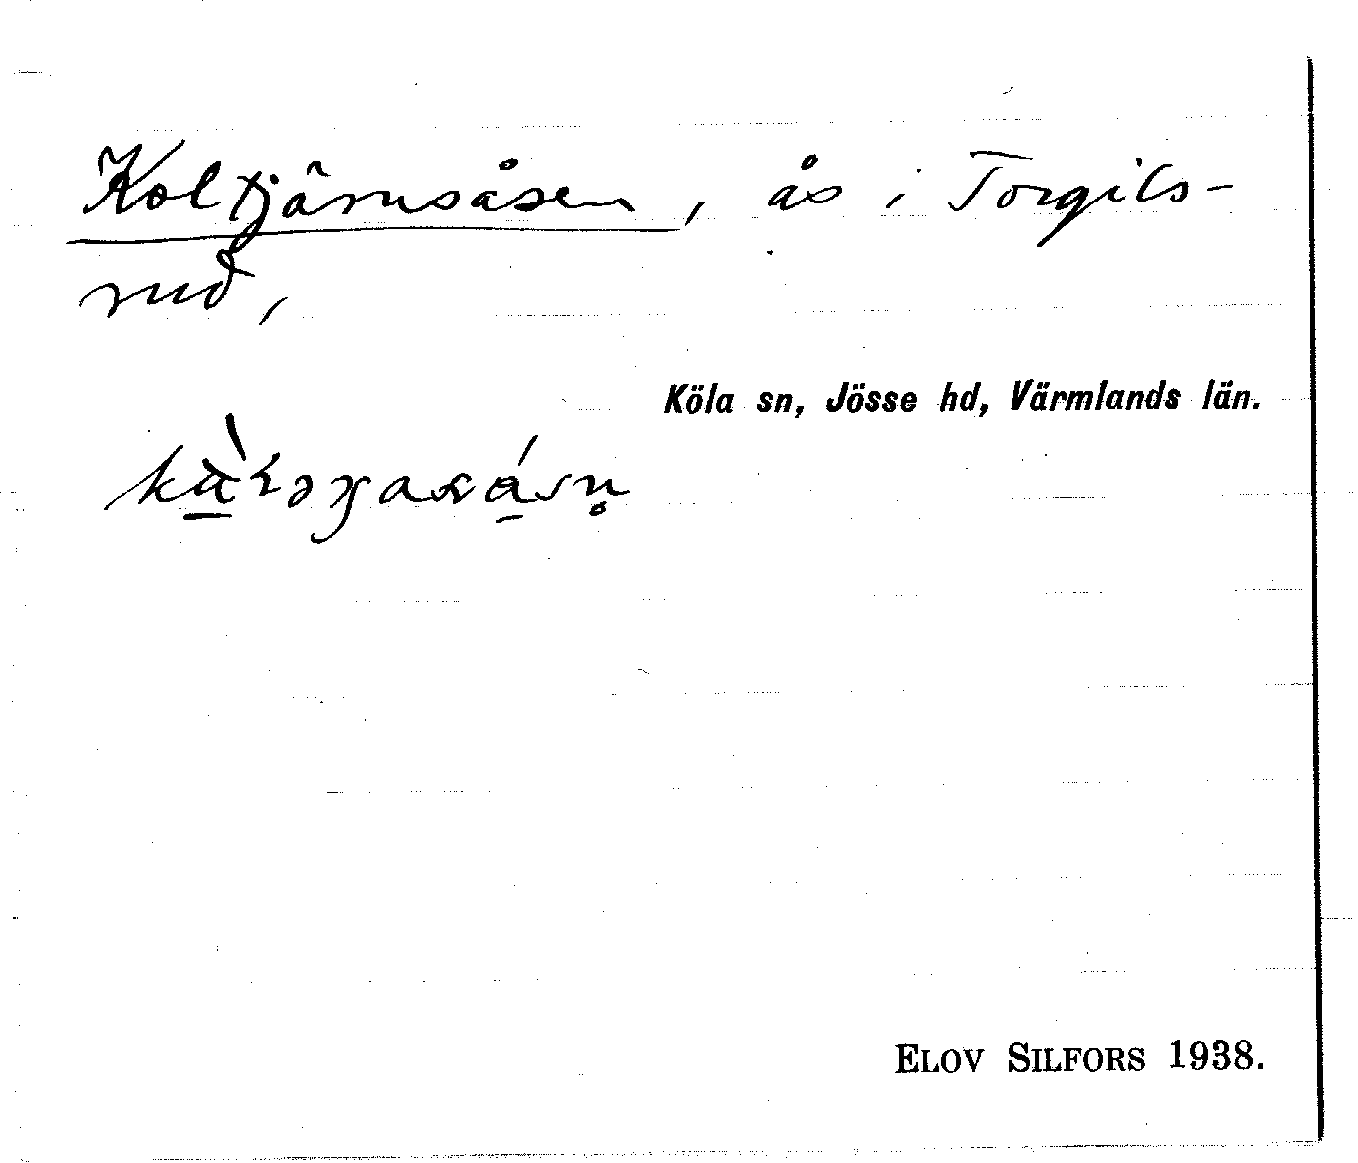 Koltjärnsåsen, ås i Torgils-
rud,
Köla sn, Jösse hd, Värmlands län.
ELOV SILFORS 1938.